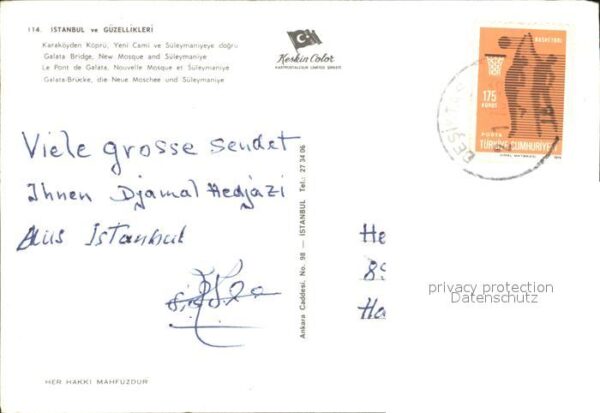 114. İSTANBUL ve GÜZELLİKLERİ
Karaköyden Köprü, Yeni Cami ve Süleymaniyeye doğru
Galata Bridge, New Mosque and Süleymaniye
Le Pont de Galata, Nouvelle Mosque et Süleymaniye
Galata-Brücke, die Neue Moschee und Süleymaniye
Keskin Color
KARTPOSTALCILIK LIMITED ŞİRKETİ
BASKETBOL
175
KURUŞ
POSTA
TÜRKİYE CUMHURİYETİ
Viele grosse sendet
Ihnen Djamal Hedjazi
Aus Istanbul
Ankara Caddesi, No. 98 — İSTANBUL Tel.: 27 34 06
He
89
Ha
privacy protection
Datenschutz
HER HAKKI MAHFUZDUR